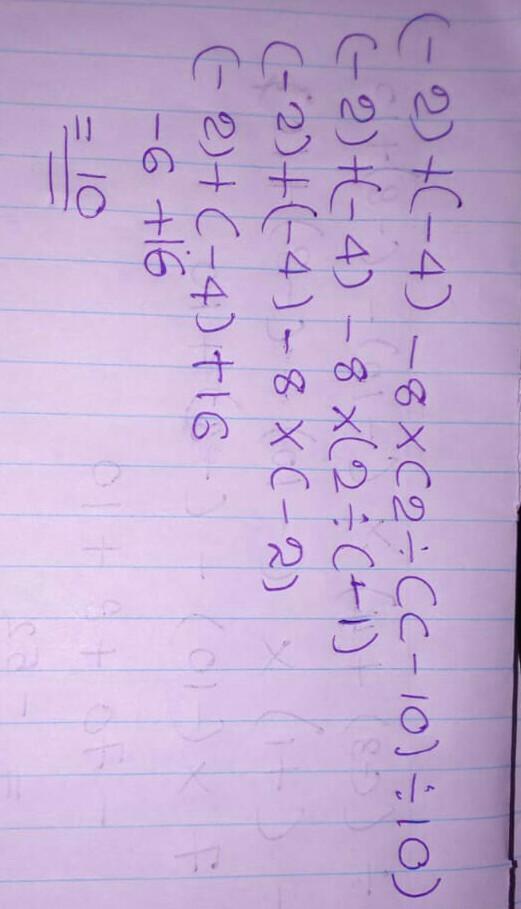 (-2) + (-4) -8 × (2 ÷ ((-10) ÷ 10)
(-2) + (-4) -8 × (2 ÷ (-1)
(-2) + (-4) - 8 × (-2)
(-2) + (-4) + 16
-6 + 16
= 10